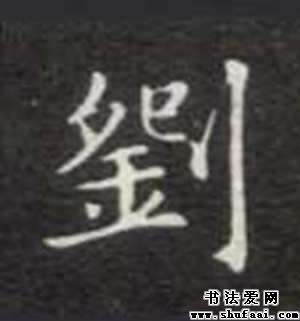 劉
书法爱网
www.shufaai.com